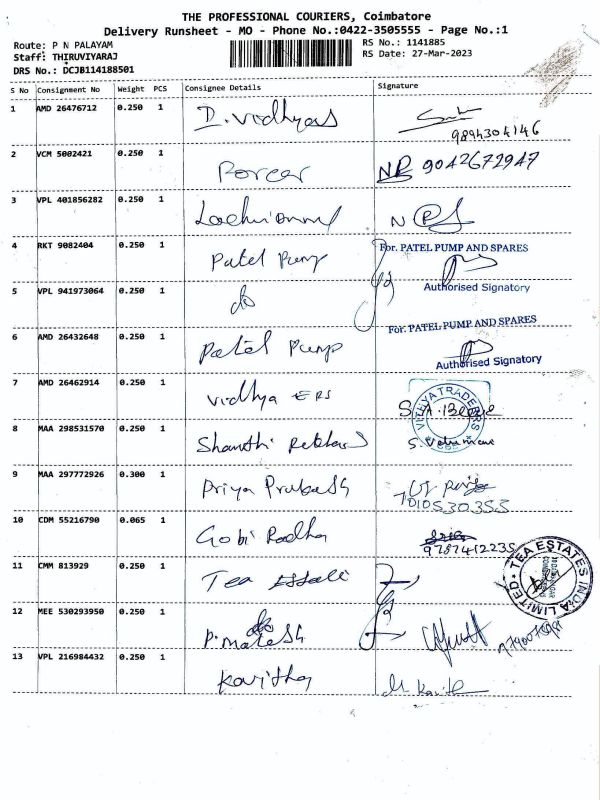 THE PROFESSIONAL COURIERS, Coimbatore
Delivery Runsheet - MO - Phone No.:0422-3505555 - Page No.:1
Route: P N PALAYAM
RS No.: 1141885
Staff: THIRUVIYARAJ
RS Date: 27-Mar-2023
DRS No.: DCJB114188501
S No Consignment No Weight PCS Consignee Details Signature
1 AMD 26476712 0.250 1 D. Vidhya
9894304146
2 VCM 5002421 0.250 1 NR 9042672947
3 VPL 401856282 0.250 1
4 RKT 9082404 0.250 1 Patel Pump For. PATEL PUMP AND SPARES
Authorised Signatory
5 VPL 941973064 0.250 1 do
6 AMD 26432648 0.250 1 Patel Pump For. PATEL PUMP AND SPARES
Authorised Signatory
7 AMD 26462914 0.250 1 Vidhya ERS
VIDHYA TRADERS
8 MAA 298531570 0.250 1 Shanthi
9 MAA 297772926 0.300 1 Priya Prakash
7010530355
10 CDM 55216790 0.065 1 Gobi Radha
9787412235
11 CMM 813929 0.250 1 Tea Estate
TEA ESTATES INDIA LIMITED
12 MEE 530293950 0.250 1 do
P. Matesh
13 VPL 216984432 0.250 1 Kavitha Kavith